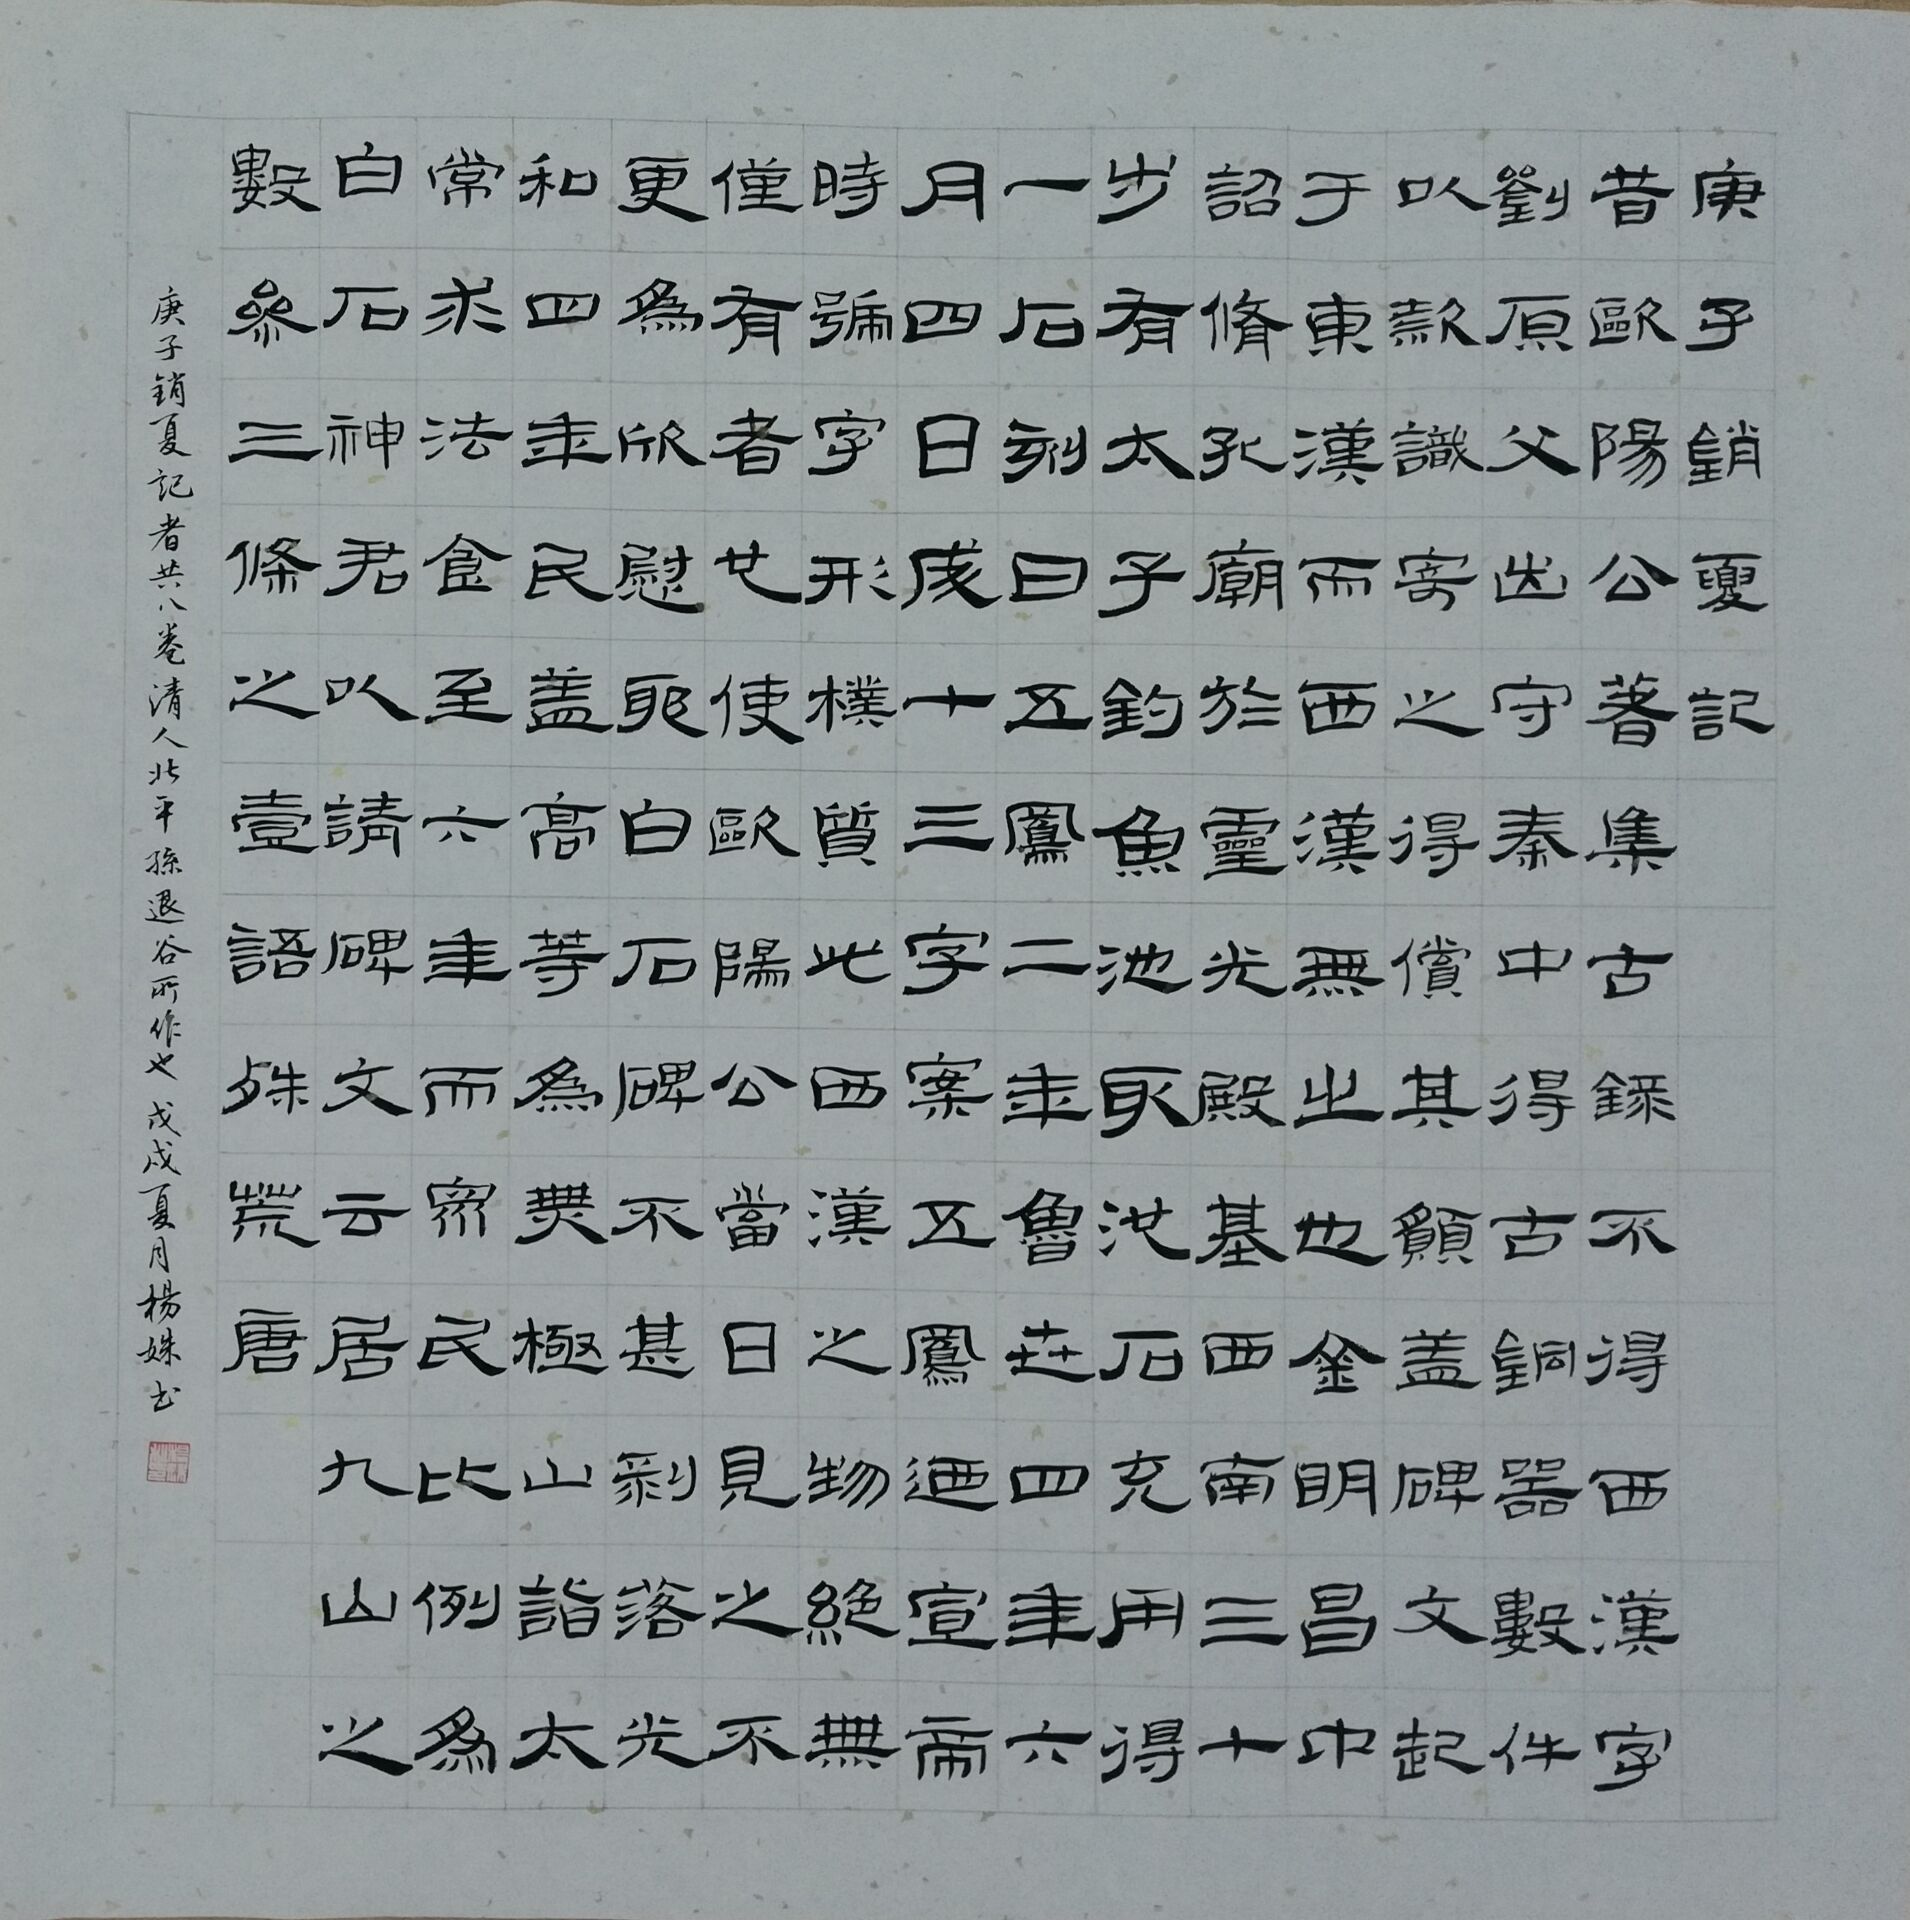 庚子銷夏記
昔歐陽公著集古錄不得西漢字
劉原父出守秦中得古銅器數件
以款識寄之得償其願蓋碑文起
于東漢而西漢無之也金明昌中
詔脩孔廟於靈光殿基西南三十
步有太子釣魚池取池石充用得
一石刻曰五鳳二年魯卅四年六
月四日成十三字案五鳳迺宣帝
時號字形樸質此西漢之物絕無
僅有者也使歐陽公當日見之不
更為欣慰耶白石碑不甚剝落光
和四年民蓋高等為無極山詣太
常求法食至六年而眾民比例為
白石神君以請碑文云居九山之
數參三條之壹語殊荒唐
庚子銷夏記者共八卷清人北平孫退谷所作也戊戌夏月楊姝书